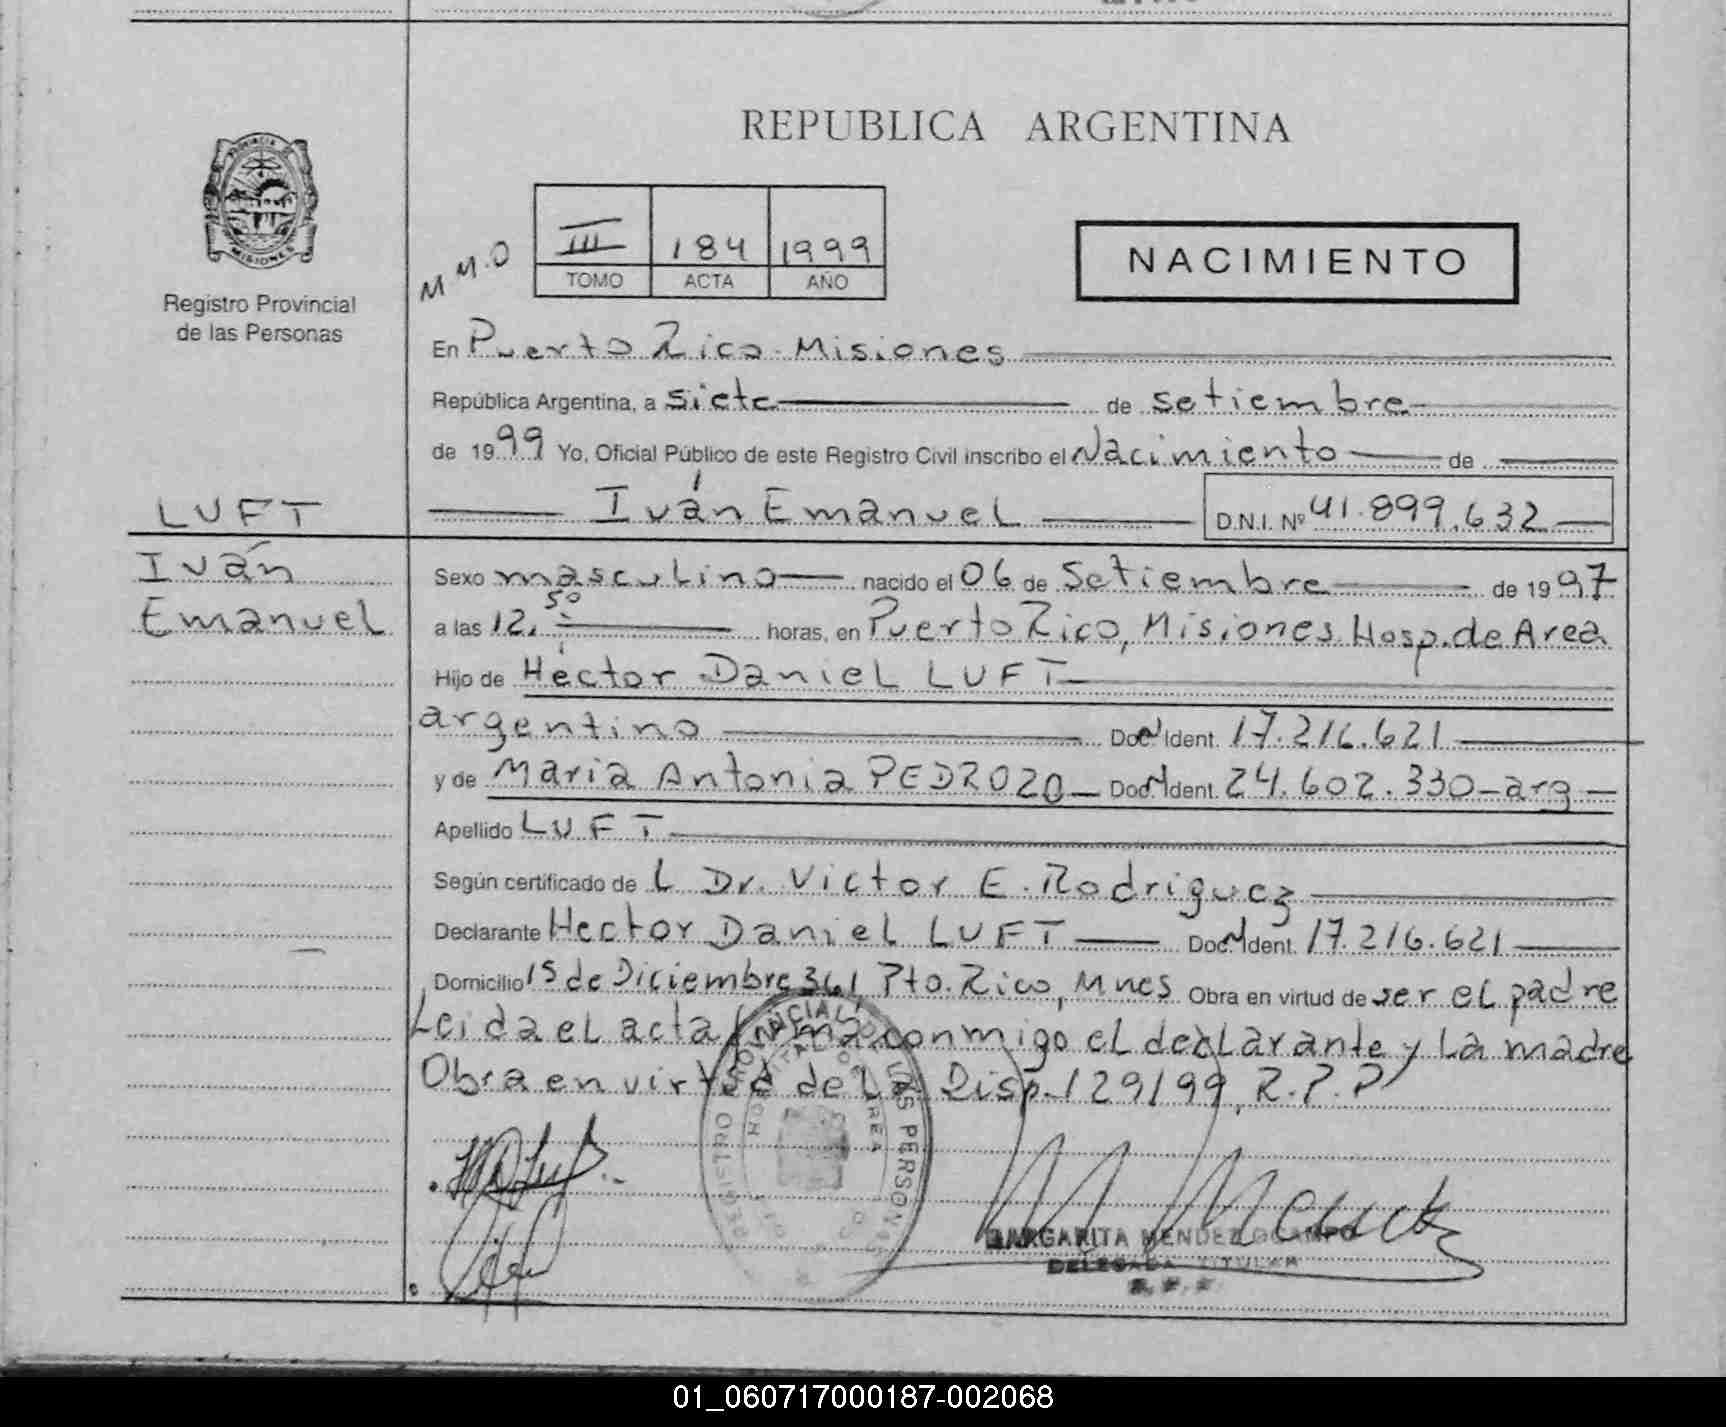 REPUBLICA ARGENTINA
PROVINCIA DE
MISIONES
Registro Provincial
de las Personas
M M.O
III 184 1999
TOMO ACTA AÑO
NACIMIENTO
En Puerto Rico - Misiones
República Argentina, a siete de setiembre
de 1999 Yo, Oficial Público de este Registro Civil inscribo el Nacimiento de
Iván Emanuel D.N.I. Nº 41.899.632
LUFT
Iván
Emanuel
Sexo masculino nacido el 06 de Setiembre de 1997
a las 12,50 horas, en Puerto Rico, Misiones Hosp. de Area
Hijo de Héctor Daniel LUFT
argentino Doc N Ident. 17.216.621
y de Maria Antonia PEDROZO Doc N Ident. 24.602.330 - arg
Apellido LUFT
Según certificado de L Dr. Victor E. Rodriguez
Declarante Hector Daniel LUFT Doc N Ident. 17.216.621
Domicilio 15 de Diciembre 361 Pto. Rico, Mnes Obra en virtud de ser el padre
Leida el acta firma conmigo el declarante y la madre
Obra en virtud de la Disp. 129/99, R.P.P
REGISTRO PROVINCIAL DE LAS PERSONAS
HOSPITAL DE AREA
MARGARITA MENDEZ OCAMPO
DELEGADA TITULAR
01_060717000187-002068